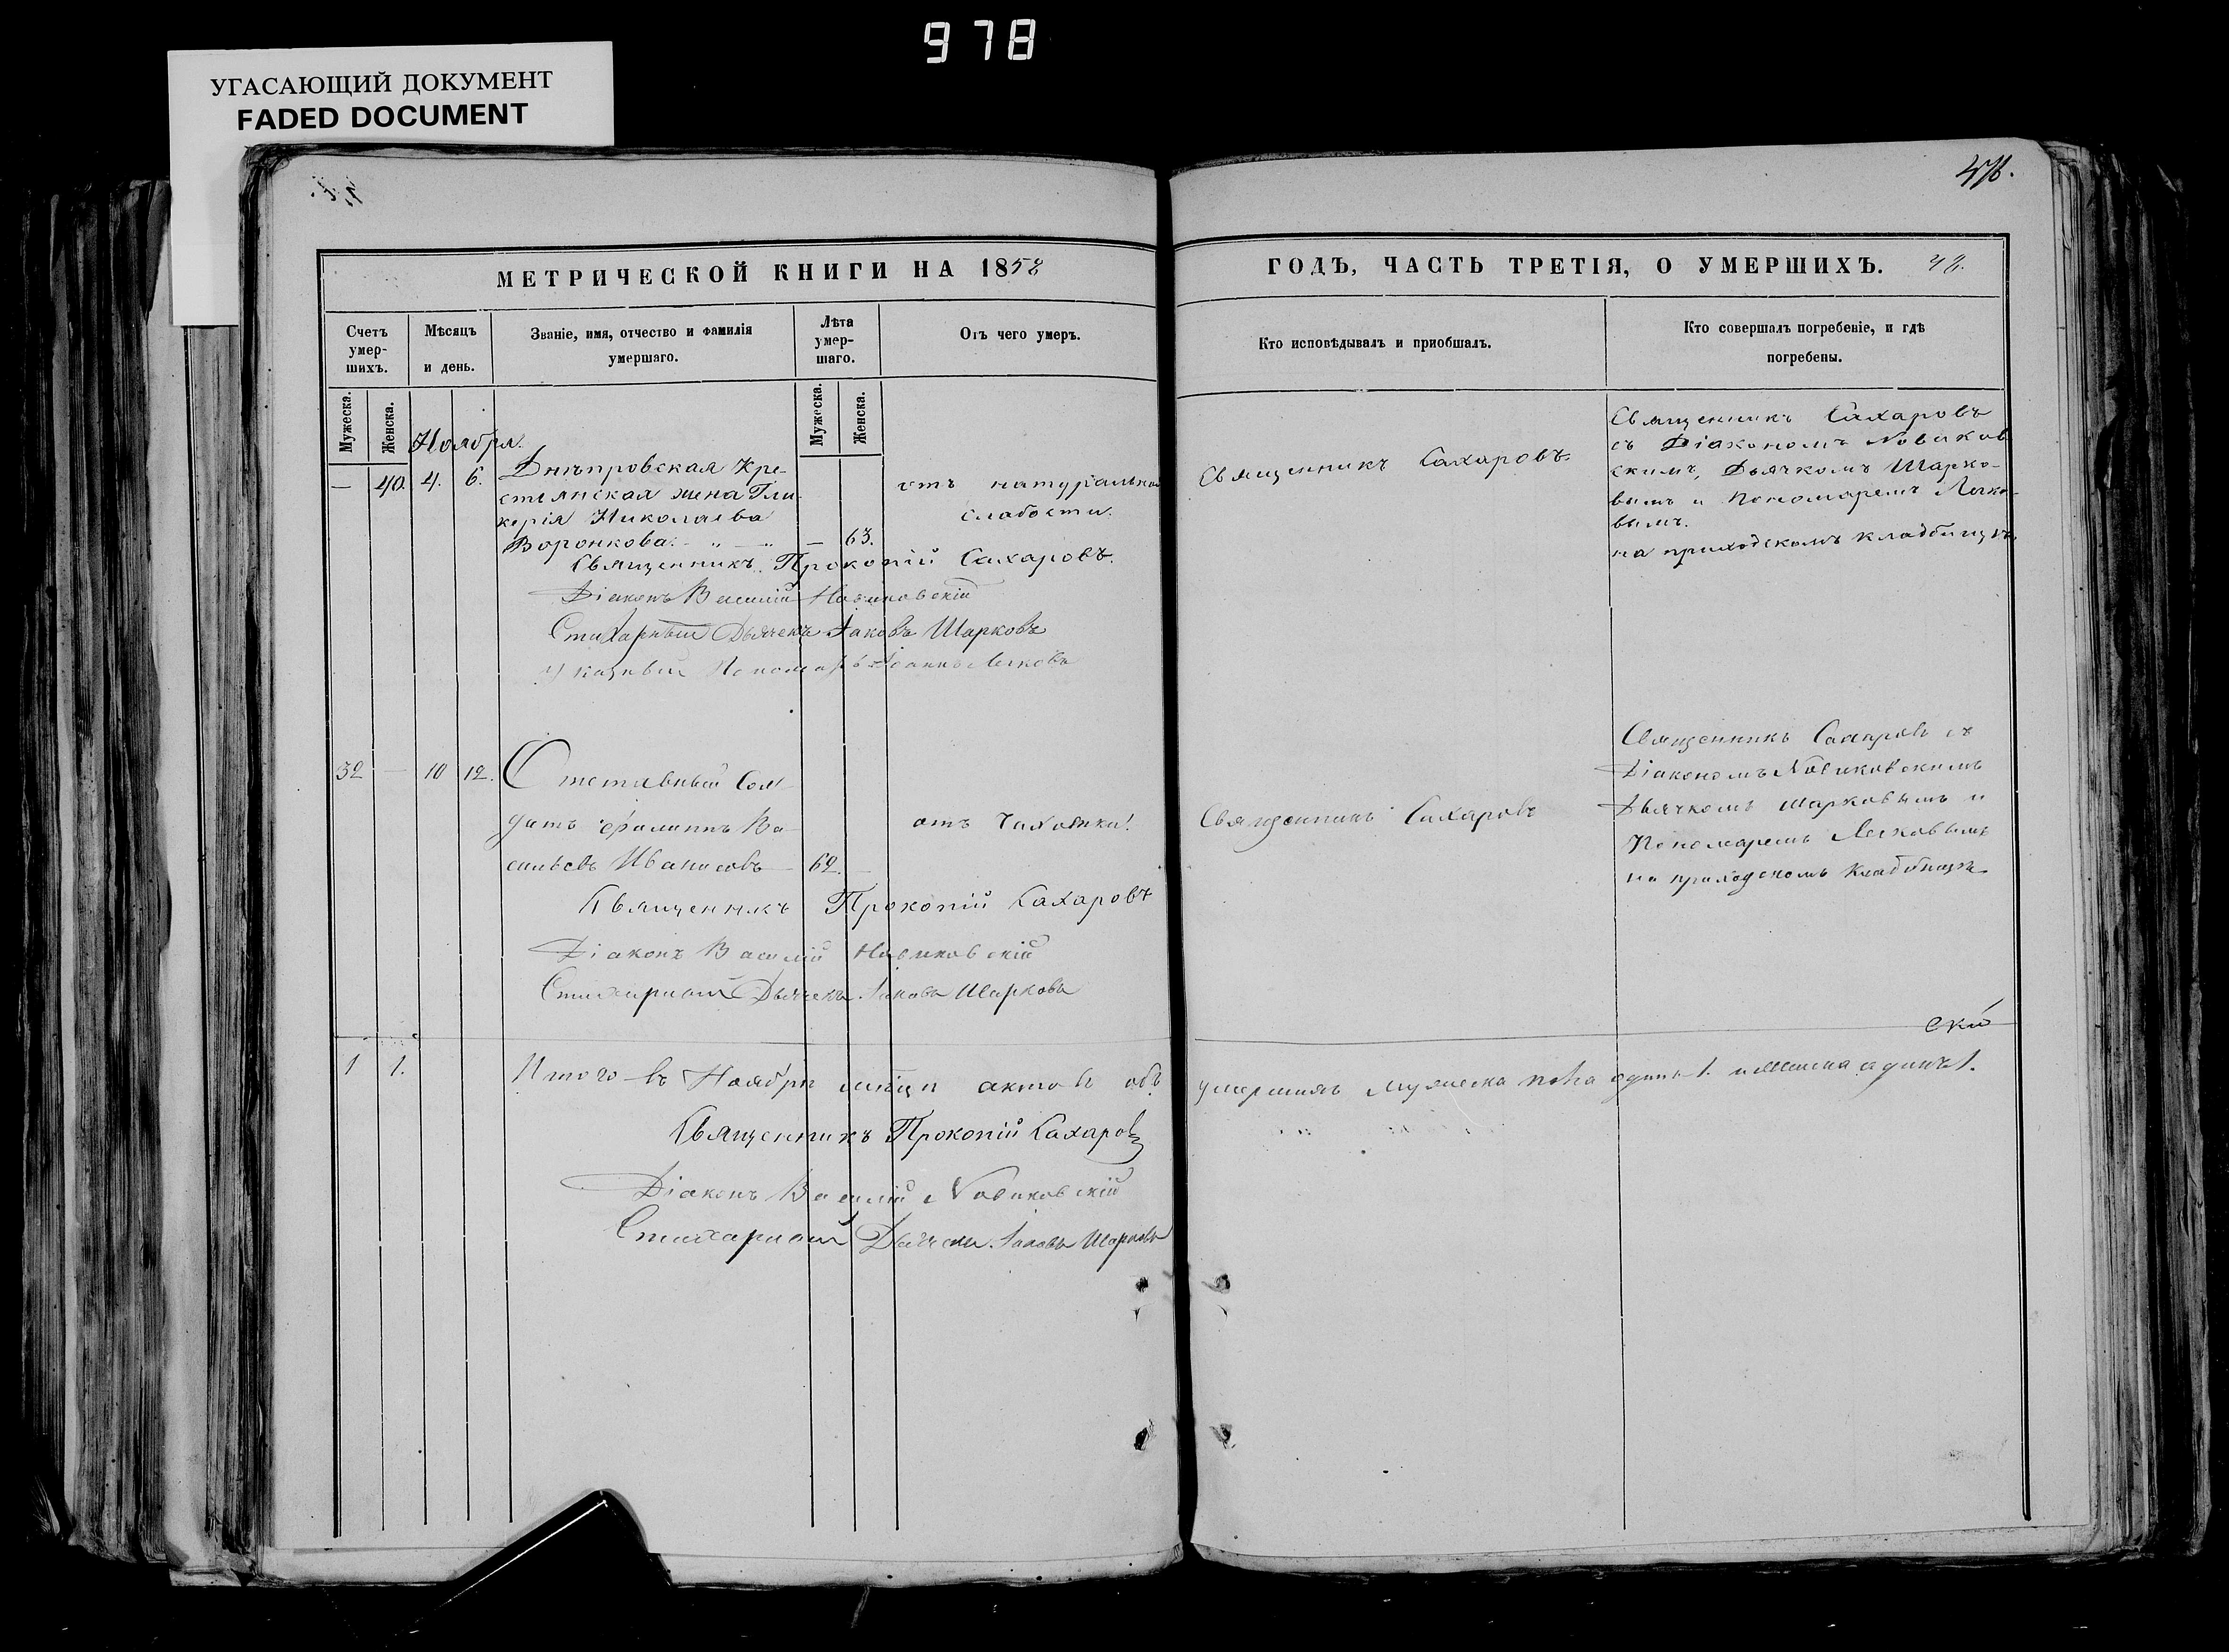 978
УГАСАЮЩИЙ ДОКУМЕНТ
FADED DOCUMENT
МЕТРИЧЕСКОЙ КНИГИ НА 1858
Счетъ умер-шихъ.
Мѣсяцъ и день.
Званіе, имя, отчество и фамилія умершаго.
Лѣта умер-шаго.
Отъ чего умеръ.
Мужеска.
Женска.
Мужеска.
Женска.
Ноября.
— 40. 4. 6. Днѣпровская Кре-
стьянская жена Гли-
керія Николаева
Воронкова. — 63.
отъ натуральной
слабости.
Священникъ Прокопій Сахаровъ.
Діаконъ Василій Новиковскій
Стихарный Дьячекъ Іаковъ Шарковъ
Указный Пономарь Іоаннъ
32 — 10 12. Отставный Сол-
датъ Филиппъ Ва-
сильевъ 62. —
отъ Чахотки.
Священникъ Прокопій Сахаровъ
Діаконъ Василій Новиковскій
Стихарный Дьячекъ Іаковъ Шарковъ
1 1. Итого въ Ноябрѣ мѣсцѣ актовъ объ
Священникъ Прокопій Сахаровъ
Діаконъ Василій Новиковскій
Стихарный Дьячекъ Іаковъ Шарковъ
ГОДЪ, ЧАСТЬ ТРЕТІЯ, О УМЕРШИХЪ.
Кто исповѣдывалъ и приобщалъ.
Кто совершалъ погребеніе, и гдѣ погребены.
Священникъ Сахаровъ.
Священникъ Сахаровъ
съ Діакономъ Новиков
скимъ, Дьячкомъ Шарко-
вымъ и Пономаремъ
вымъ.
на приходскомъ кладбищѣ.
Священникъ Сахаровъ
Священникъ Сахаровъ съ
Діакономъ Новиковскимъ
Дьячкомъ Шарковымъ и
Пономаремъ
на приходскомъ кладбищѣ
умершихъ мужеска пола одинъ 1. и женска одинъ 1.